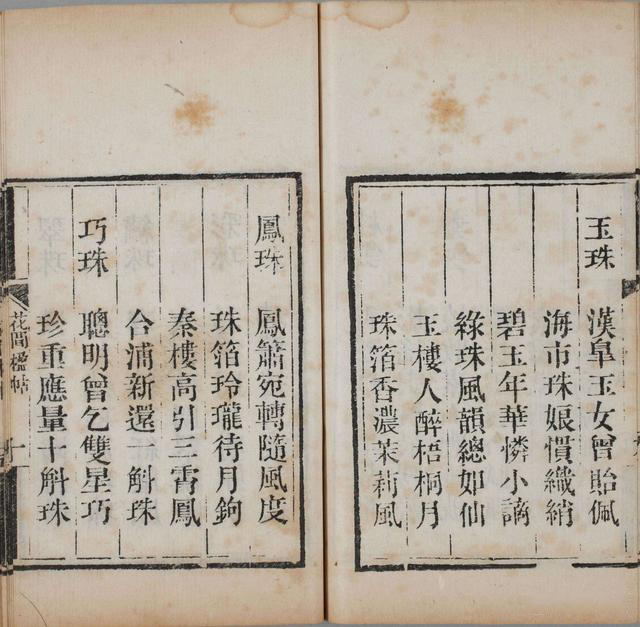 玉珠
漢皐玉女曾貽佩
海市珠娘慣織綃
碧玉年華憐小謫
綠珠風韻總如仙
玉樓人醉梧桐月
珠箔香濃茉莉風
鳳珠
鳳簫宛轉隨風度
珠箔玲瓏待月鉤
秦樓高引三霄鳳
合浦新還一斛珠
巧珠
聰明曾乞雙星巧
珍重應量十斛珠
花間楹帖
十